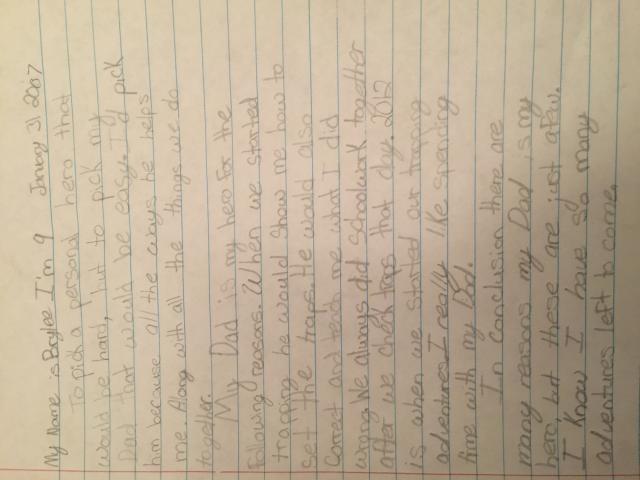 My Name is Baylee I'm 9 January 31 2007
To pick a personal hero that
would be hard, but to pick my
Dad that would be easy. I'd pick
him because all the ways he helps
me. Along with all the things we do
together.
My Dad is my hero for the
following reasons. When we started
trapping he would show me how to
set the traps. He would also
correct and teach me what I did
wrong. We always did schoolwork together
after we check traps that day. 2012
is when we started our trapping
adventures I really like spending
time with my Dad.
In Conclusion there are
many reasons my Dad is my
hero, but these are just afew.
I Know I have so many
adventures left to come.